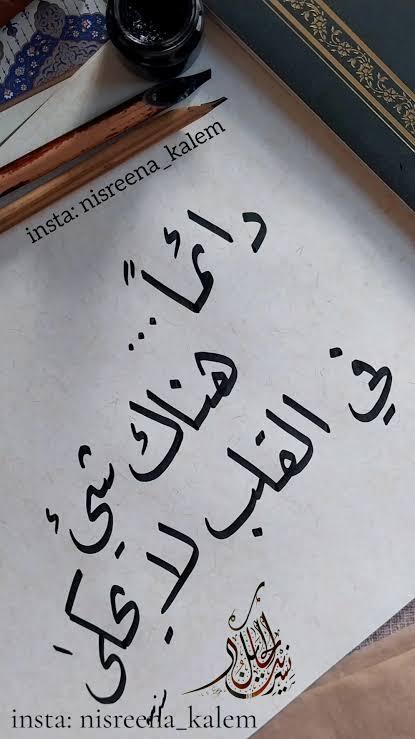 insta: nisreena_kalem
دائماً...
هناك شيئ
في القلب لا يحكى
insta: nisreena_kalem